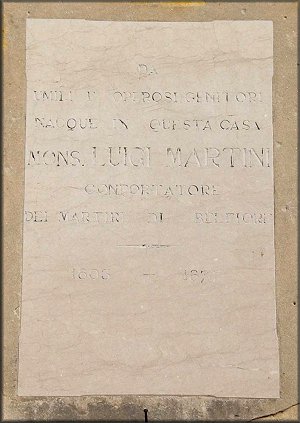 DA
UMILI E OPEROSI GENITORI
NACQUE IN QUESTA CASA
MONS. LUIGI MARTINI
CONFORTATORE
DEI MARTIRI DI BELFIORE
1803 —